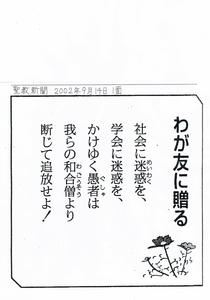 聖教新聞 2002年9月14日 1面
わが友に贈る
社会に迷惑を、
学会に迷惑を、
かけゆく愚者は
我らの和合僧より
断じて追放せよ!
めいわく
ぐしゃ
わごうそう